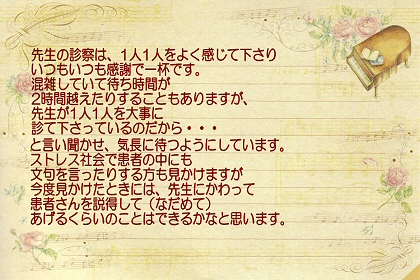 先生の診察は、1人1人をよく感じて下さり
いつもいつも感謝で一杯です。
混雑していて待ち時間が
2時間越えたりすることもありますが、
先生が1人1人を大事に
診て下さっているのだから・・・
と言い聞かせ、気長に待つようにしています。
ストレス社会で患者の中にも
文句を言ったりする方も見かけますが
今度見かけたときには、先生にかわって
患者さんを説得して（なだめて）
あげるくらいのことはできるかなと思います。